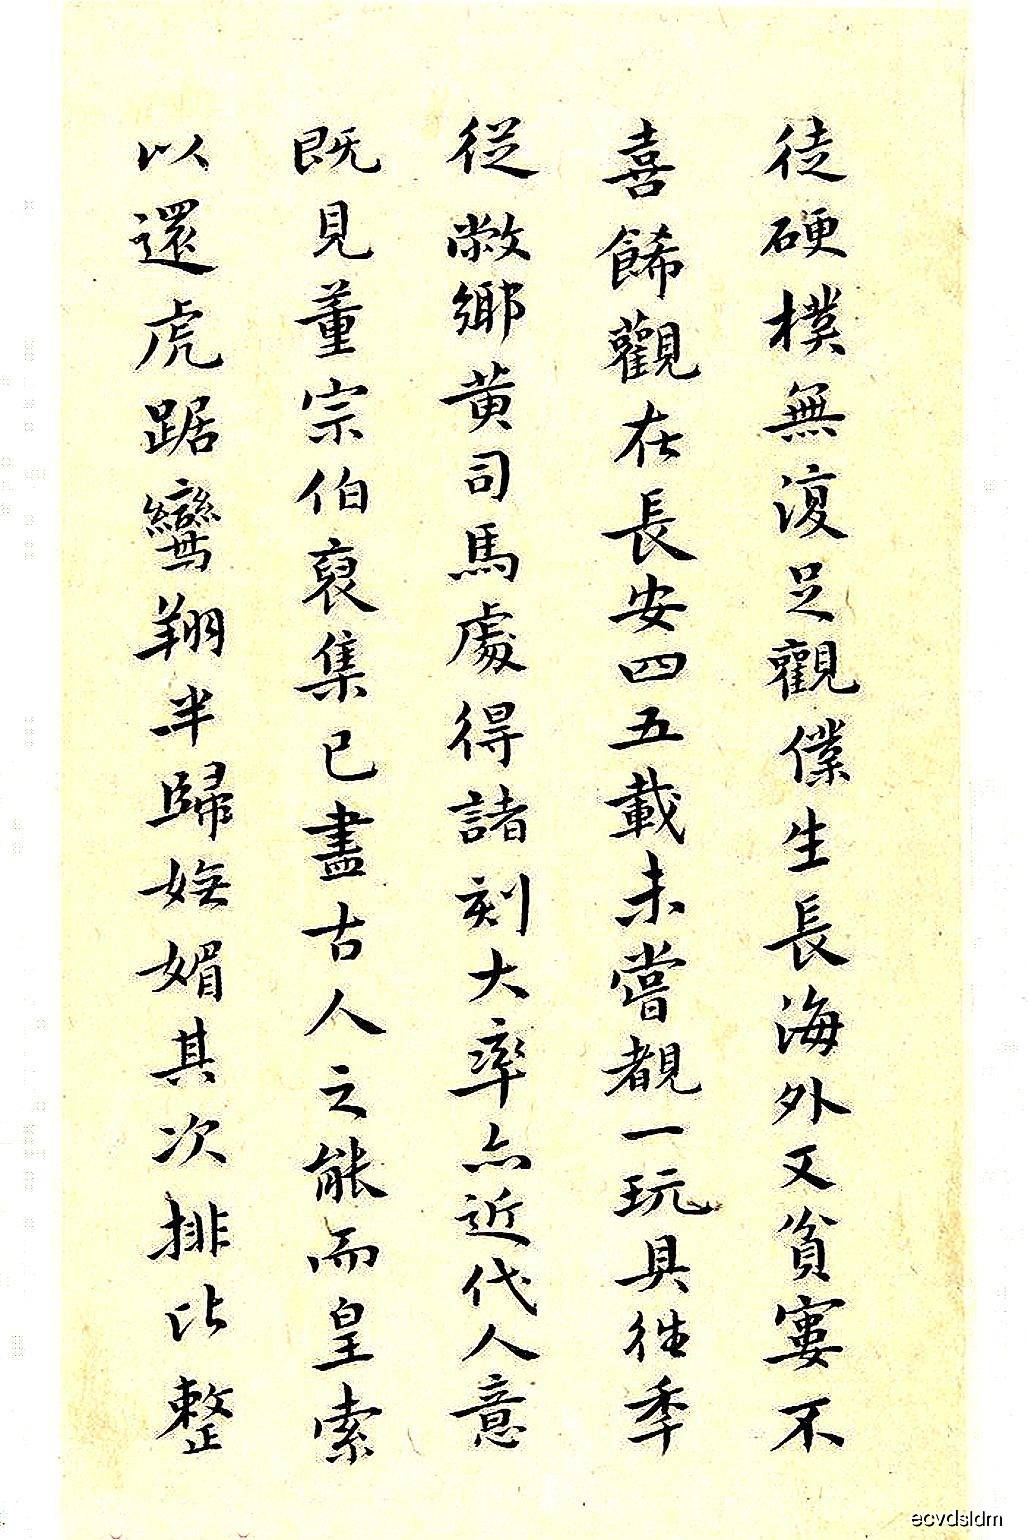 徒硬樸無復足觀僕生長海外又貧窶不
喜餙觀在長安四五載未嘗覩一玩具徃季
從敝鄉黄司馬處得諸刻大率亦近代人意
既見董宗伯裒集已盡古人之能而皇索
以還虎踞鸞翔半歸嫵媚其次排比整
ecvdsldm